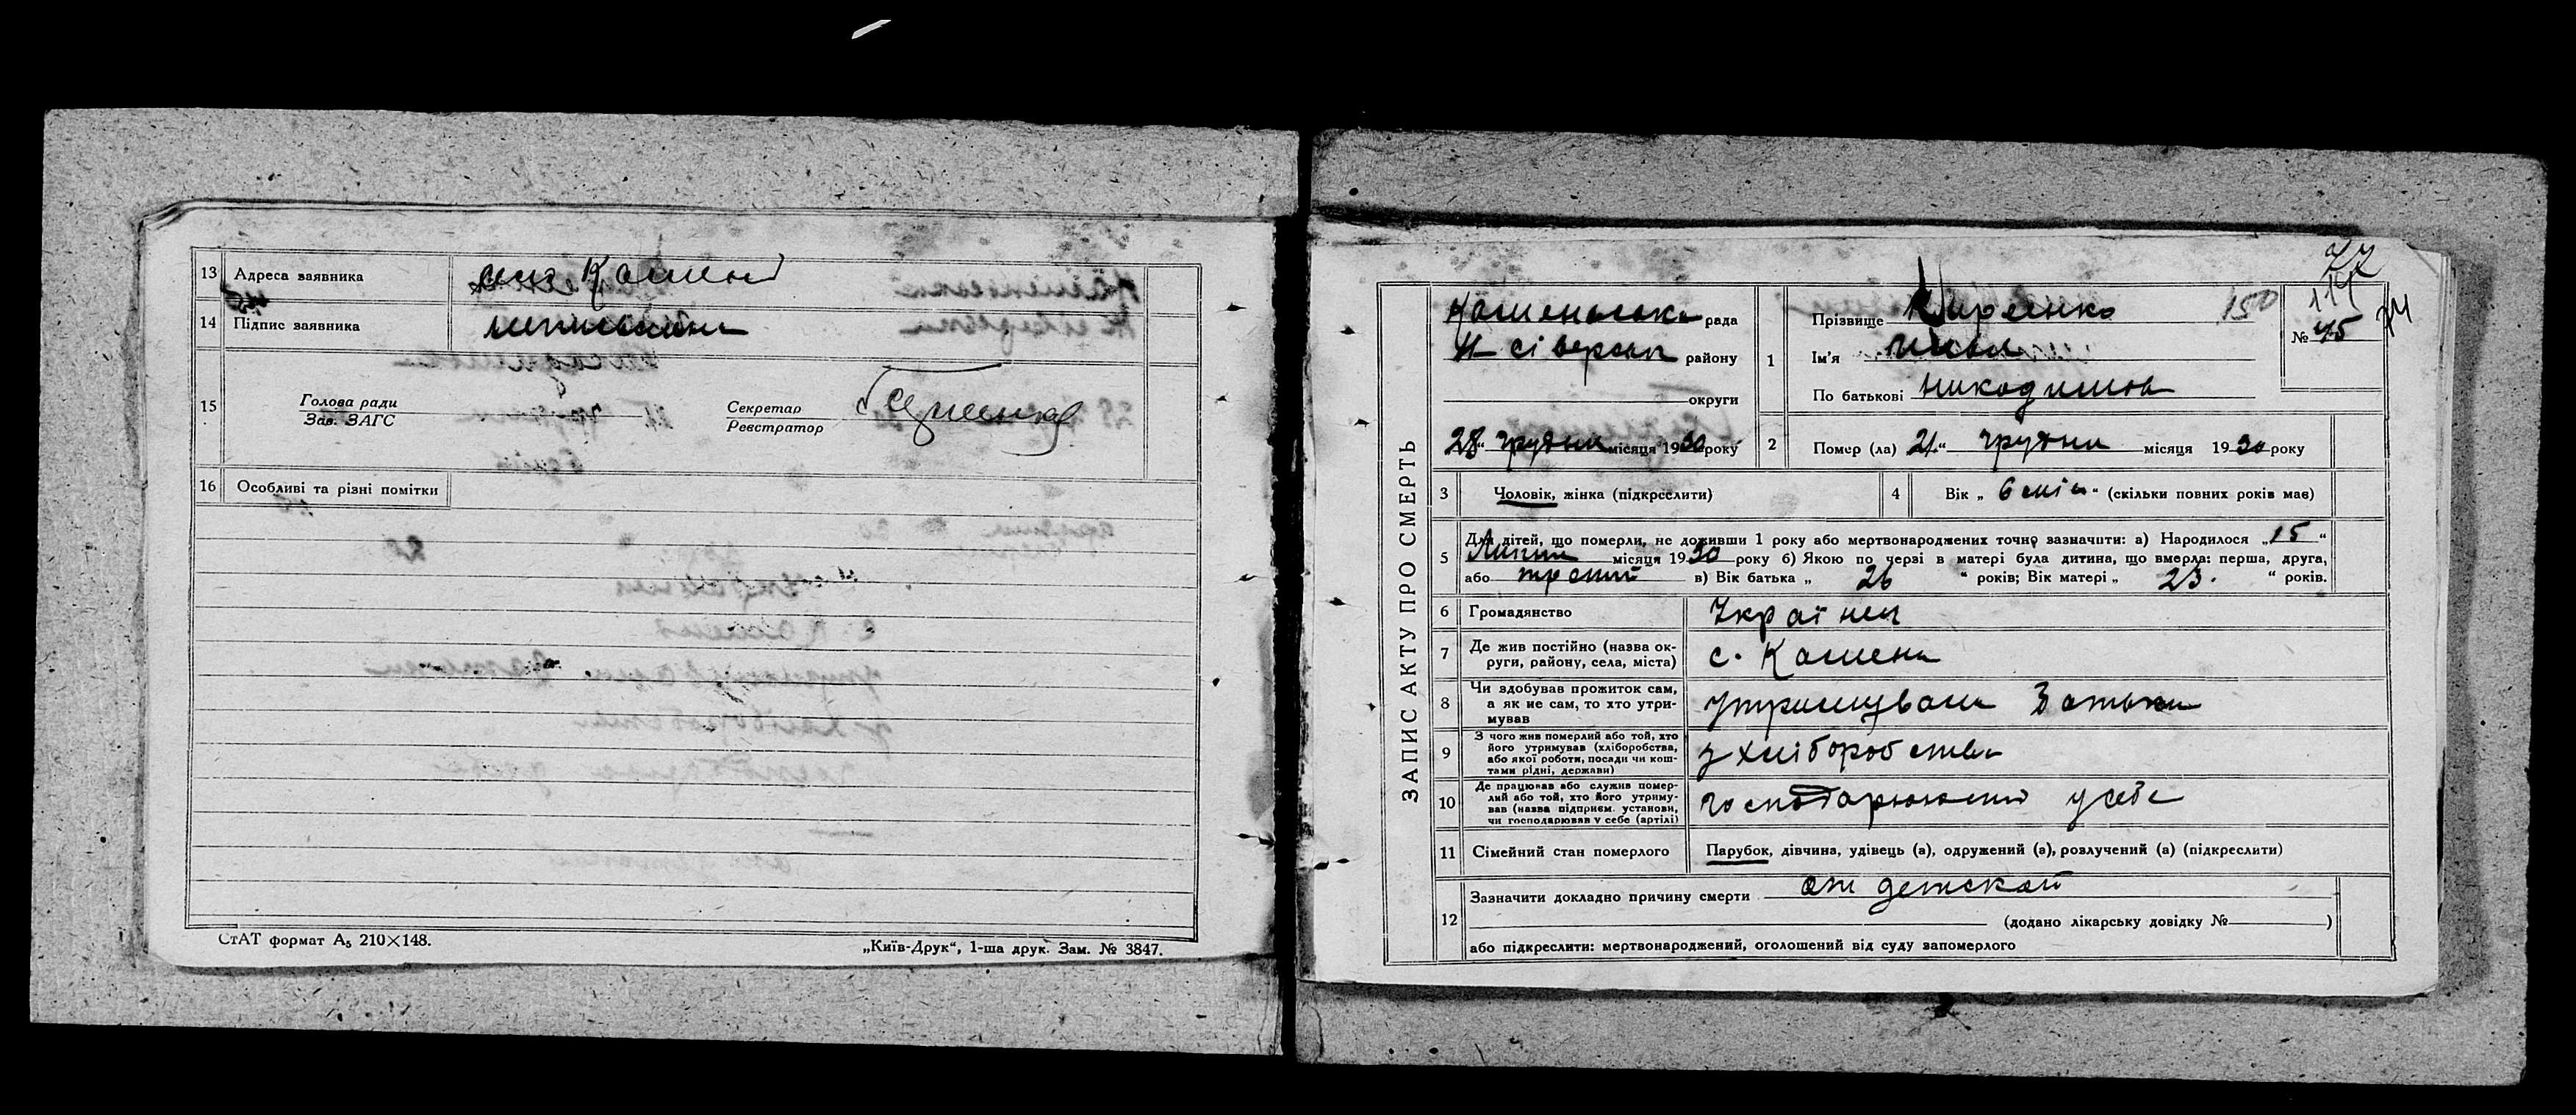 13 Адреса заявника село Камень
14 Підпис заявника неписьмен
15 Голова ради
Зав. ЗАГС
Секретар
Реєстратор
16 Особливі та різні помітки
СтАТ формат А5 210×148.
„Київ-Друк“, 1-ша друк. Зам. № 3847.
ЗАПИС АКТУ ПРО СМЕРТЬ
77
114
74
150
№ 45
Каменська рада
Н-Сіверськ району
округи
28“ грудня місяця 1930 року
1 Прізвище Киреенко
Ім'я
По батькові Никодимов
2 Помер (ла) 21“ грудня місяця 1930 року
3 Чоловік, жінка (підкреслити)
4 Вік „ 6 міс “ (скільки повних років має)
5 Для дітей, що померли, не доживши 1 року або мертвонароджених точно зазначити: а) Народилося „15“
Липня місяця 1930 року б) Якою по черзі в матері була дитина, що вмерла: перша, друга,
або третий в) Вік батька „ 26 “ років; Вік матері „ 23. “ років.
6 Громадянство Україн
7 Де жив постійно (назва ок-
руги, району, села, міста) с. Камень
8 Чи здобував прожиток сам,
а як не сам, то хто утри-
мував утримували Батьки
9 З чого жив померлий або той, хто
його утримував (хліборобства,
або якої роботи, посади чи кош-
тами рідні, держави) з хліборобства
10 Де працював або служив помер-
лий або той, хто його утриму-
вав (назва підприєм. установи,
чи господарював у себе (артілі) у себе
11 Сімейний стан померлого Парубок, дівчина, удівець (а), одружений (а), розлучений (а) (підкреслити)
12 Зазначити докладно причину смерти от детской
(додано лікарську довідку № )
або підкреслити: мертвонароджений, оголошений від суду запомерлого